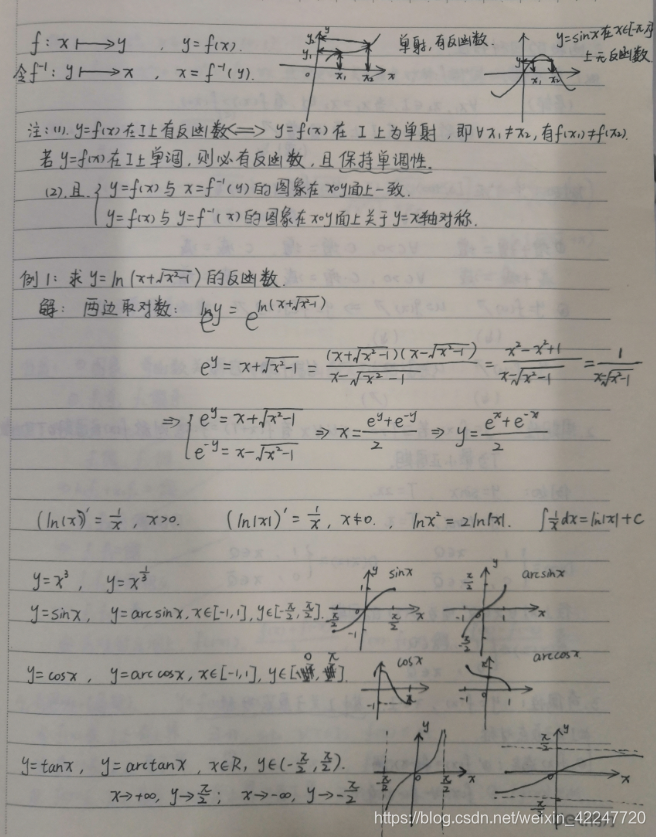 f: x ⟼ y , y=f(x). 单射,有反函数. y=sinx在x∈[-π,π]
令f⁻¹: y ⟼ x , x=f⁻¹(y). 上无反函数
注:(1). y=f(x)在I上有反函数⟺ y=f(x)在 I 上为单射,即∀x₁≠x₂,有f(x₁)≠f(x₂).
若y=f(x)在I上单调,则必有反函数,且保持单调性.
(2).且 { y=f(x)与x=f⁻¹(y)的图象在xoy面上一致.
y=f(x)与y=f⁻¹(x)的图象在xoy面上关于y=x轴对称.
例1: 求y=ln(x+√(x²-1))的反函数.
解: 两边取对数: e^y = e^(ln(x+√(x²-1)))
e^y = x+√(x²-1) = (x+√(x²-1))(x-√(x²-1)) / (x-√(x²-1)) = (x²-x²+1) / (x-√(x²-1)) = 1 / (x-√(x²-1))
⇒ { e^y = x+√(x²-1)
e^(-y) = x-√(x²-1) ⇒ x = (e^y+e^(-y))/2 ⇒ y = (e^x+e^(-x))/2
(ln(x))' = 1/x , x>0. (ln|x|)' = 1/x , x≠0. , lnx² = 2ln|x|. ∫1/x dx = ln|x|+C
y=x³ , y=x^(1/3)
sinx arcsinx
y=sinx , y=arcsinx, x∈[-1,1], y∈[-π/2, π/2].
cosx arccosx
y=cosx , y=arccosx, x∈[-1,1], y∈[0, π].
y=tanx , y=arctanx , x∈R, y∈(-π/2, π/2).
x→+∞, y→π/2 ; x→-∞, y→-π/2
https://blog.csdn.net/weixin_42247720